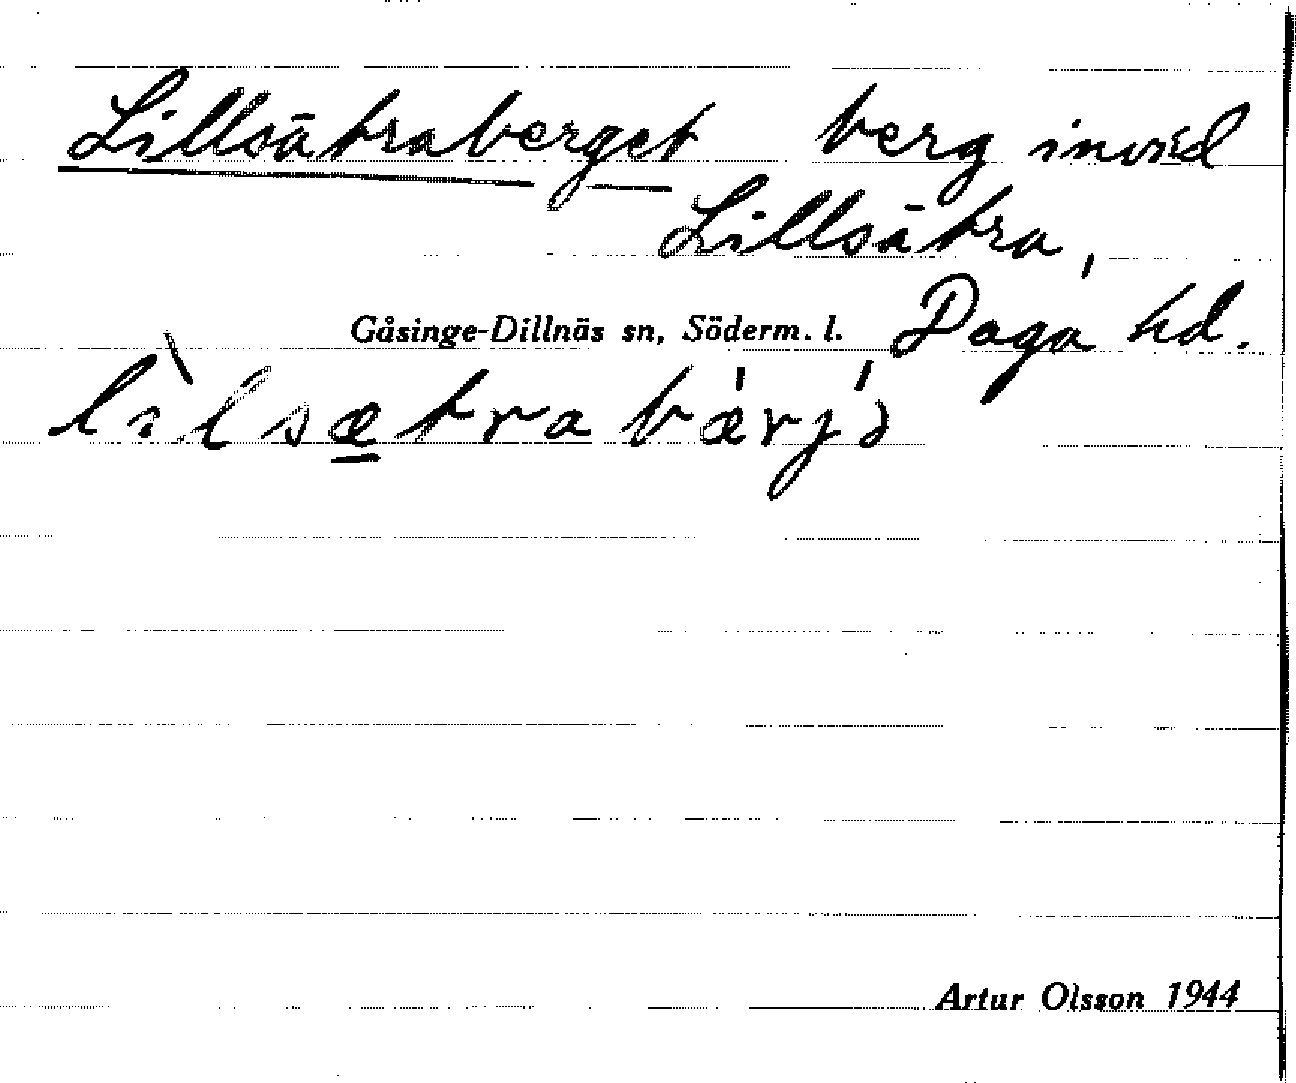 Lillsätraberget berg invid
Lillsätra,
Gåsinge-Dillnäs sn, Söderm. l. Daga hd.
lìlsætrabærjə
Artur Olsson 1944